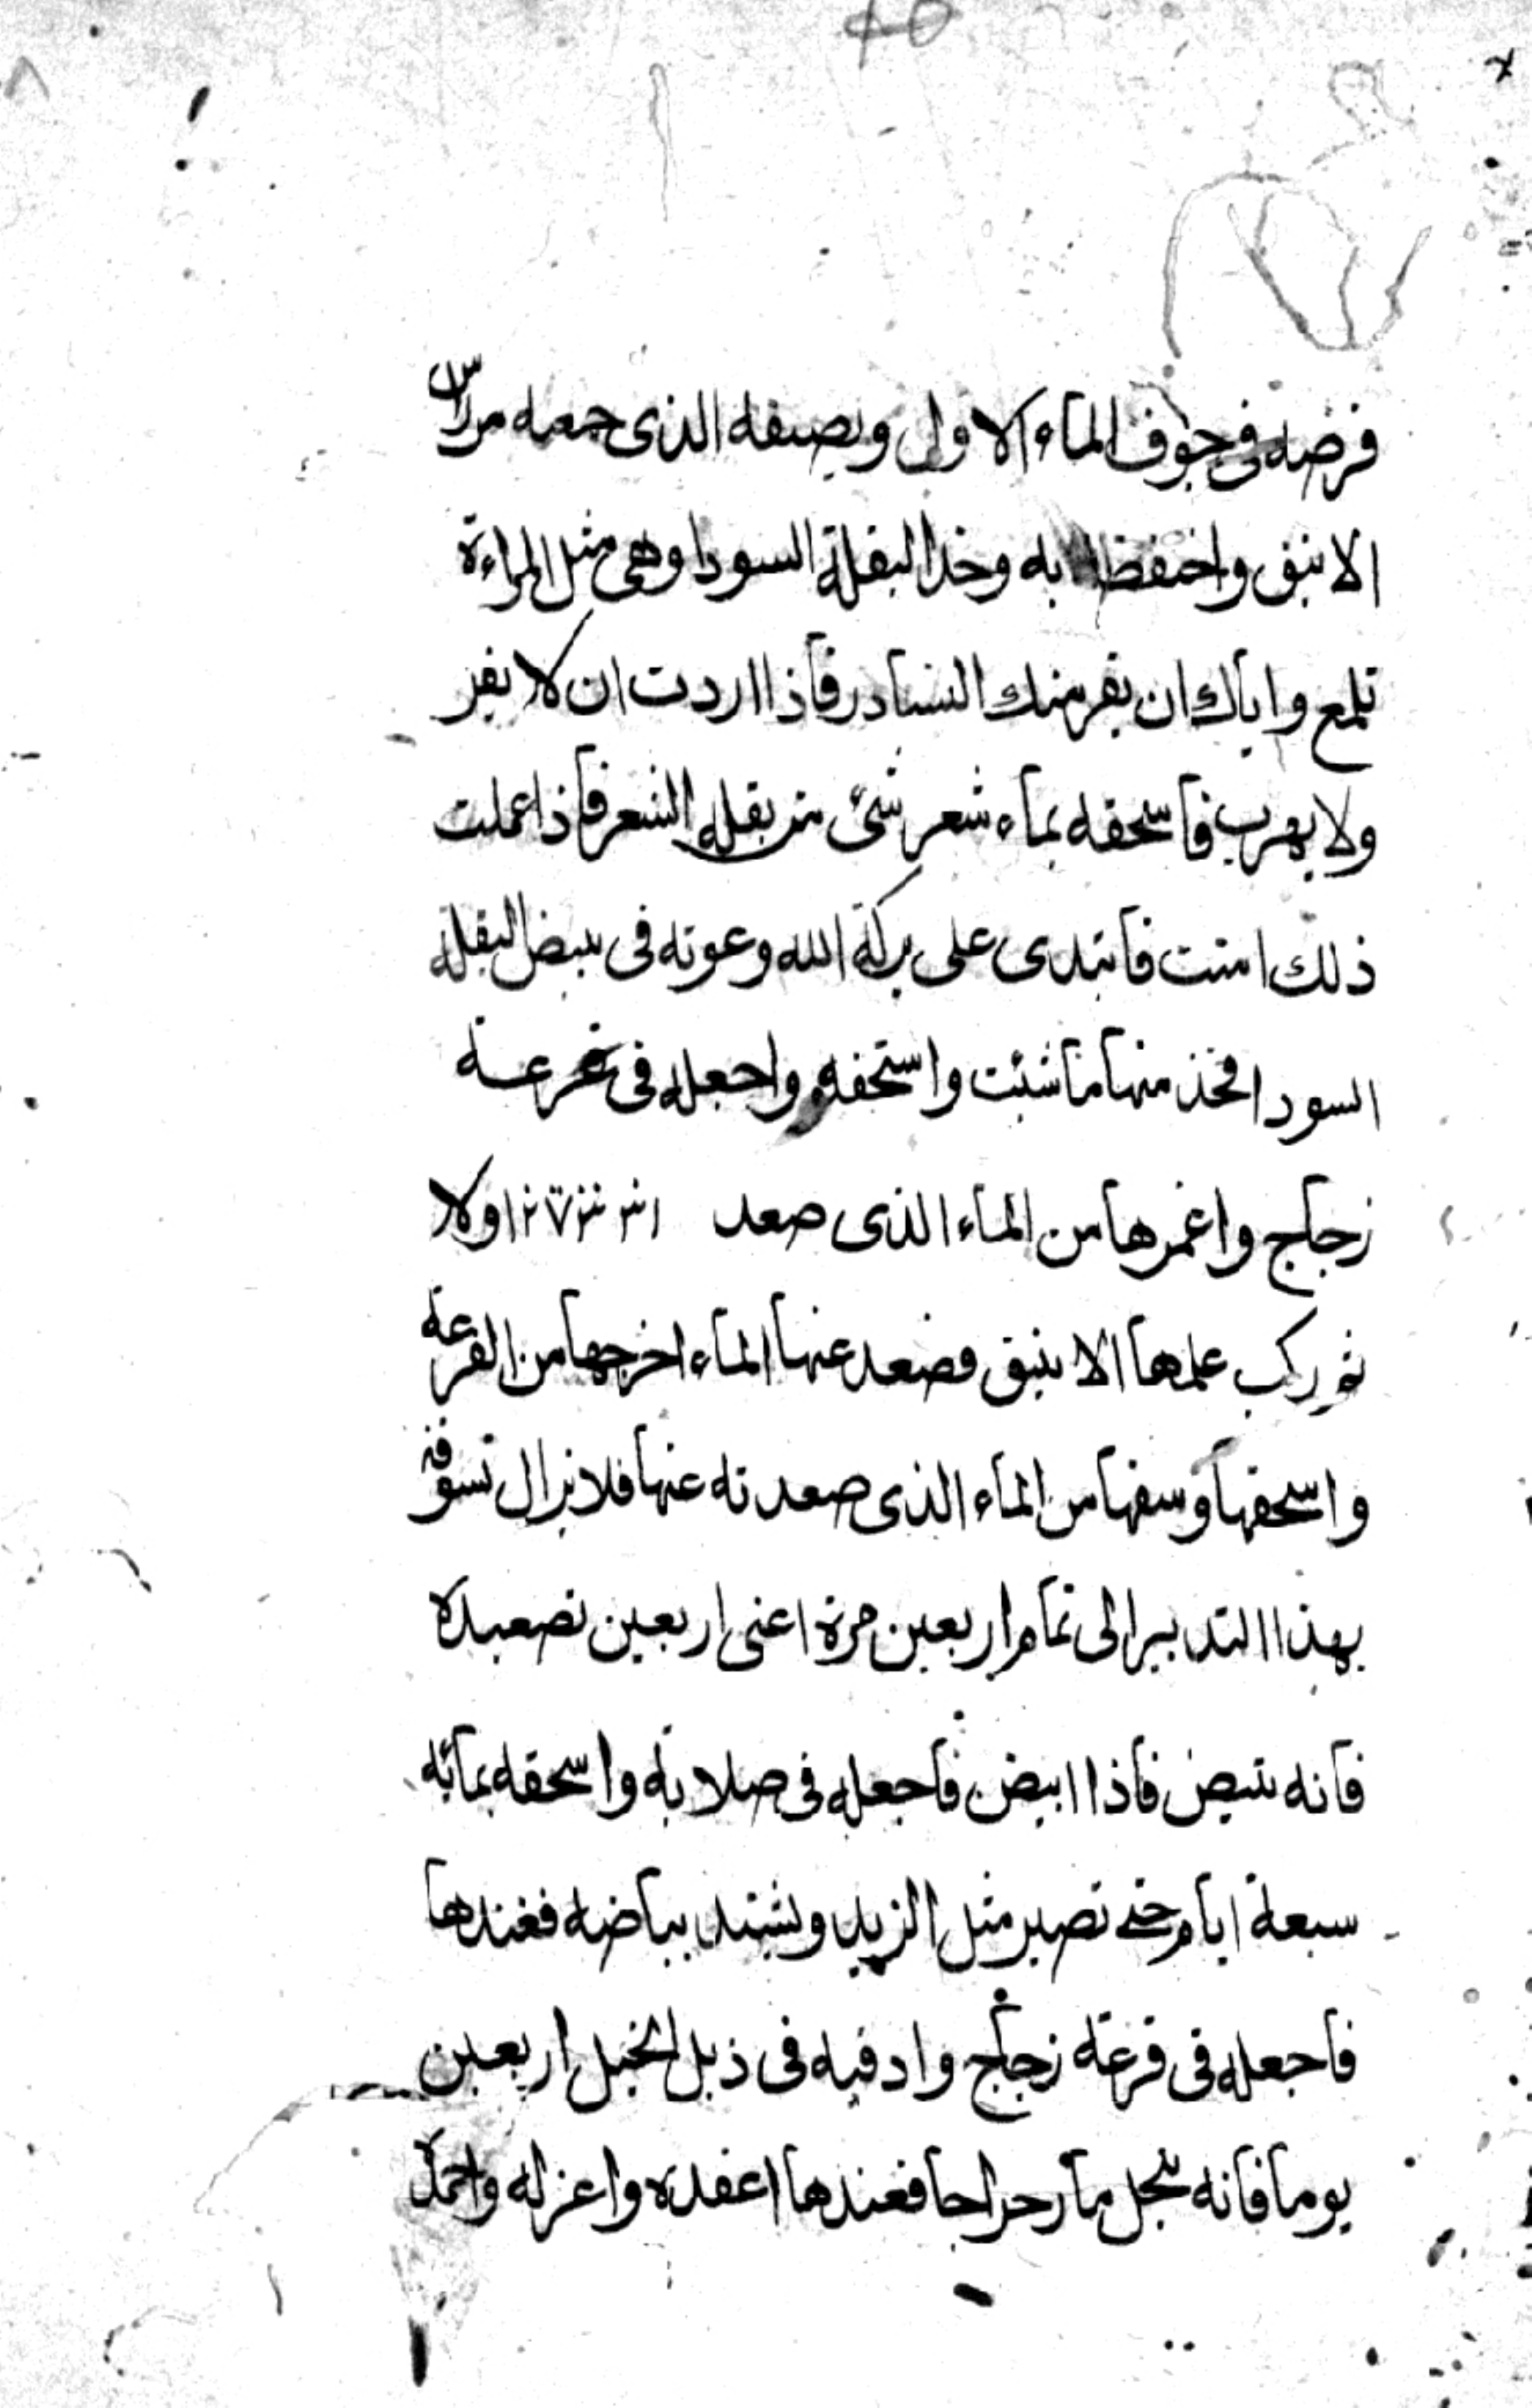 فرضه فى جوف الماء الاولى ونصيفه الذى جمعه من راس
الانبق واحتفظ به وخذ البقلة السودا وهى مثل المراءة
تلمع واياك ان يفر منك النشادر فاذا اردت ان لا يفر
ولا يهرب فاسحقه بماء شعر شئ من بقله الشعر فاذا عملت
ذلك امنت فابتدى على بركة الله وعونه فى بيض البقلة
السودا فخذ منها ما شئت واستحفه واجعله فى غرعة
زجاج واغمرها من الماء الذى صعد اولا
ثم ركب عليها الانبيق فصعد عنها الماء اخرجها من القرعة
واسحقها وسقها من الماء الذى صعدته عنها فلا يزال تسوقه
بهذا التدبير الى تمام اربعين مرة اعنى اربعين تصعيدة
فانه يبيض فاذا ابيض فاجعله فى صلابة واسحقه بمائه
سبعة ايام حتى تصير مثل الزبد ويشتد بياضه فعندها
فاجعله فى قرعة زجاج وادفنه فى ذبل الخيل اربعين
يوما فانه ينحل مآ رجراجا فعندها اعقده واعزله واحمد